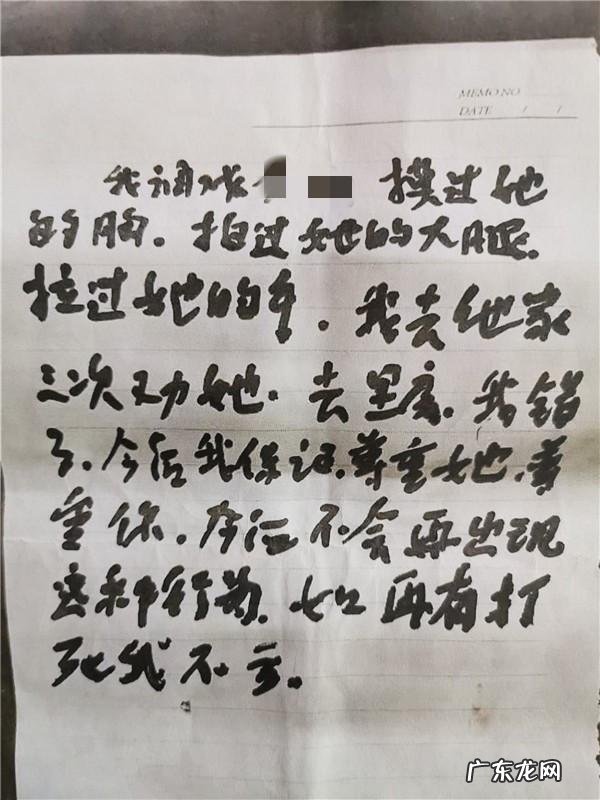 MEMO NO
DATE / /
我调戏 摸过她
的胸。拍过她的大腿。
拉过她的手。我去他家
三次又劝她。去里 。我错
了。今后我保证。尊重她。尊
重你。今后不会再出现
这种行为。如再有打
死我不 。
广东龙网